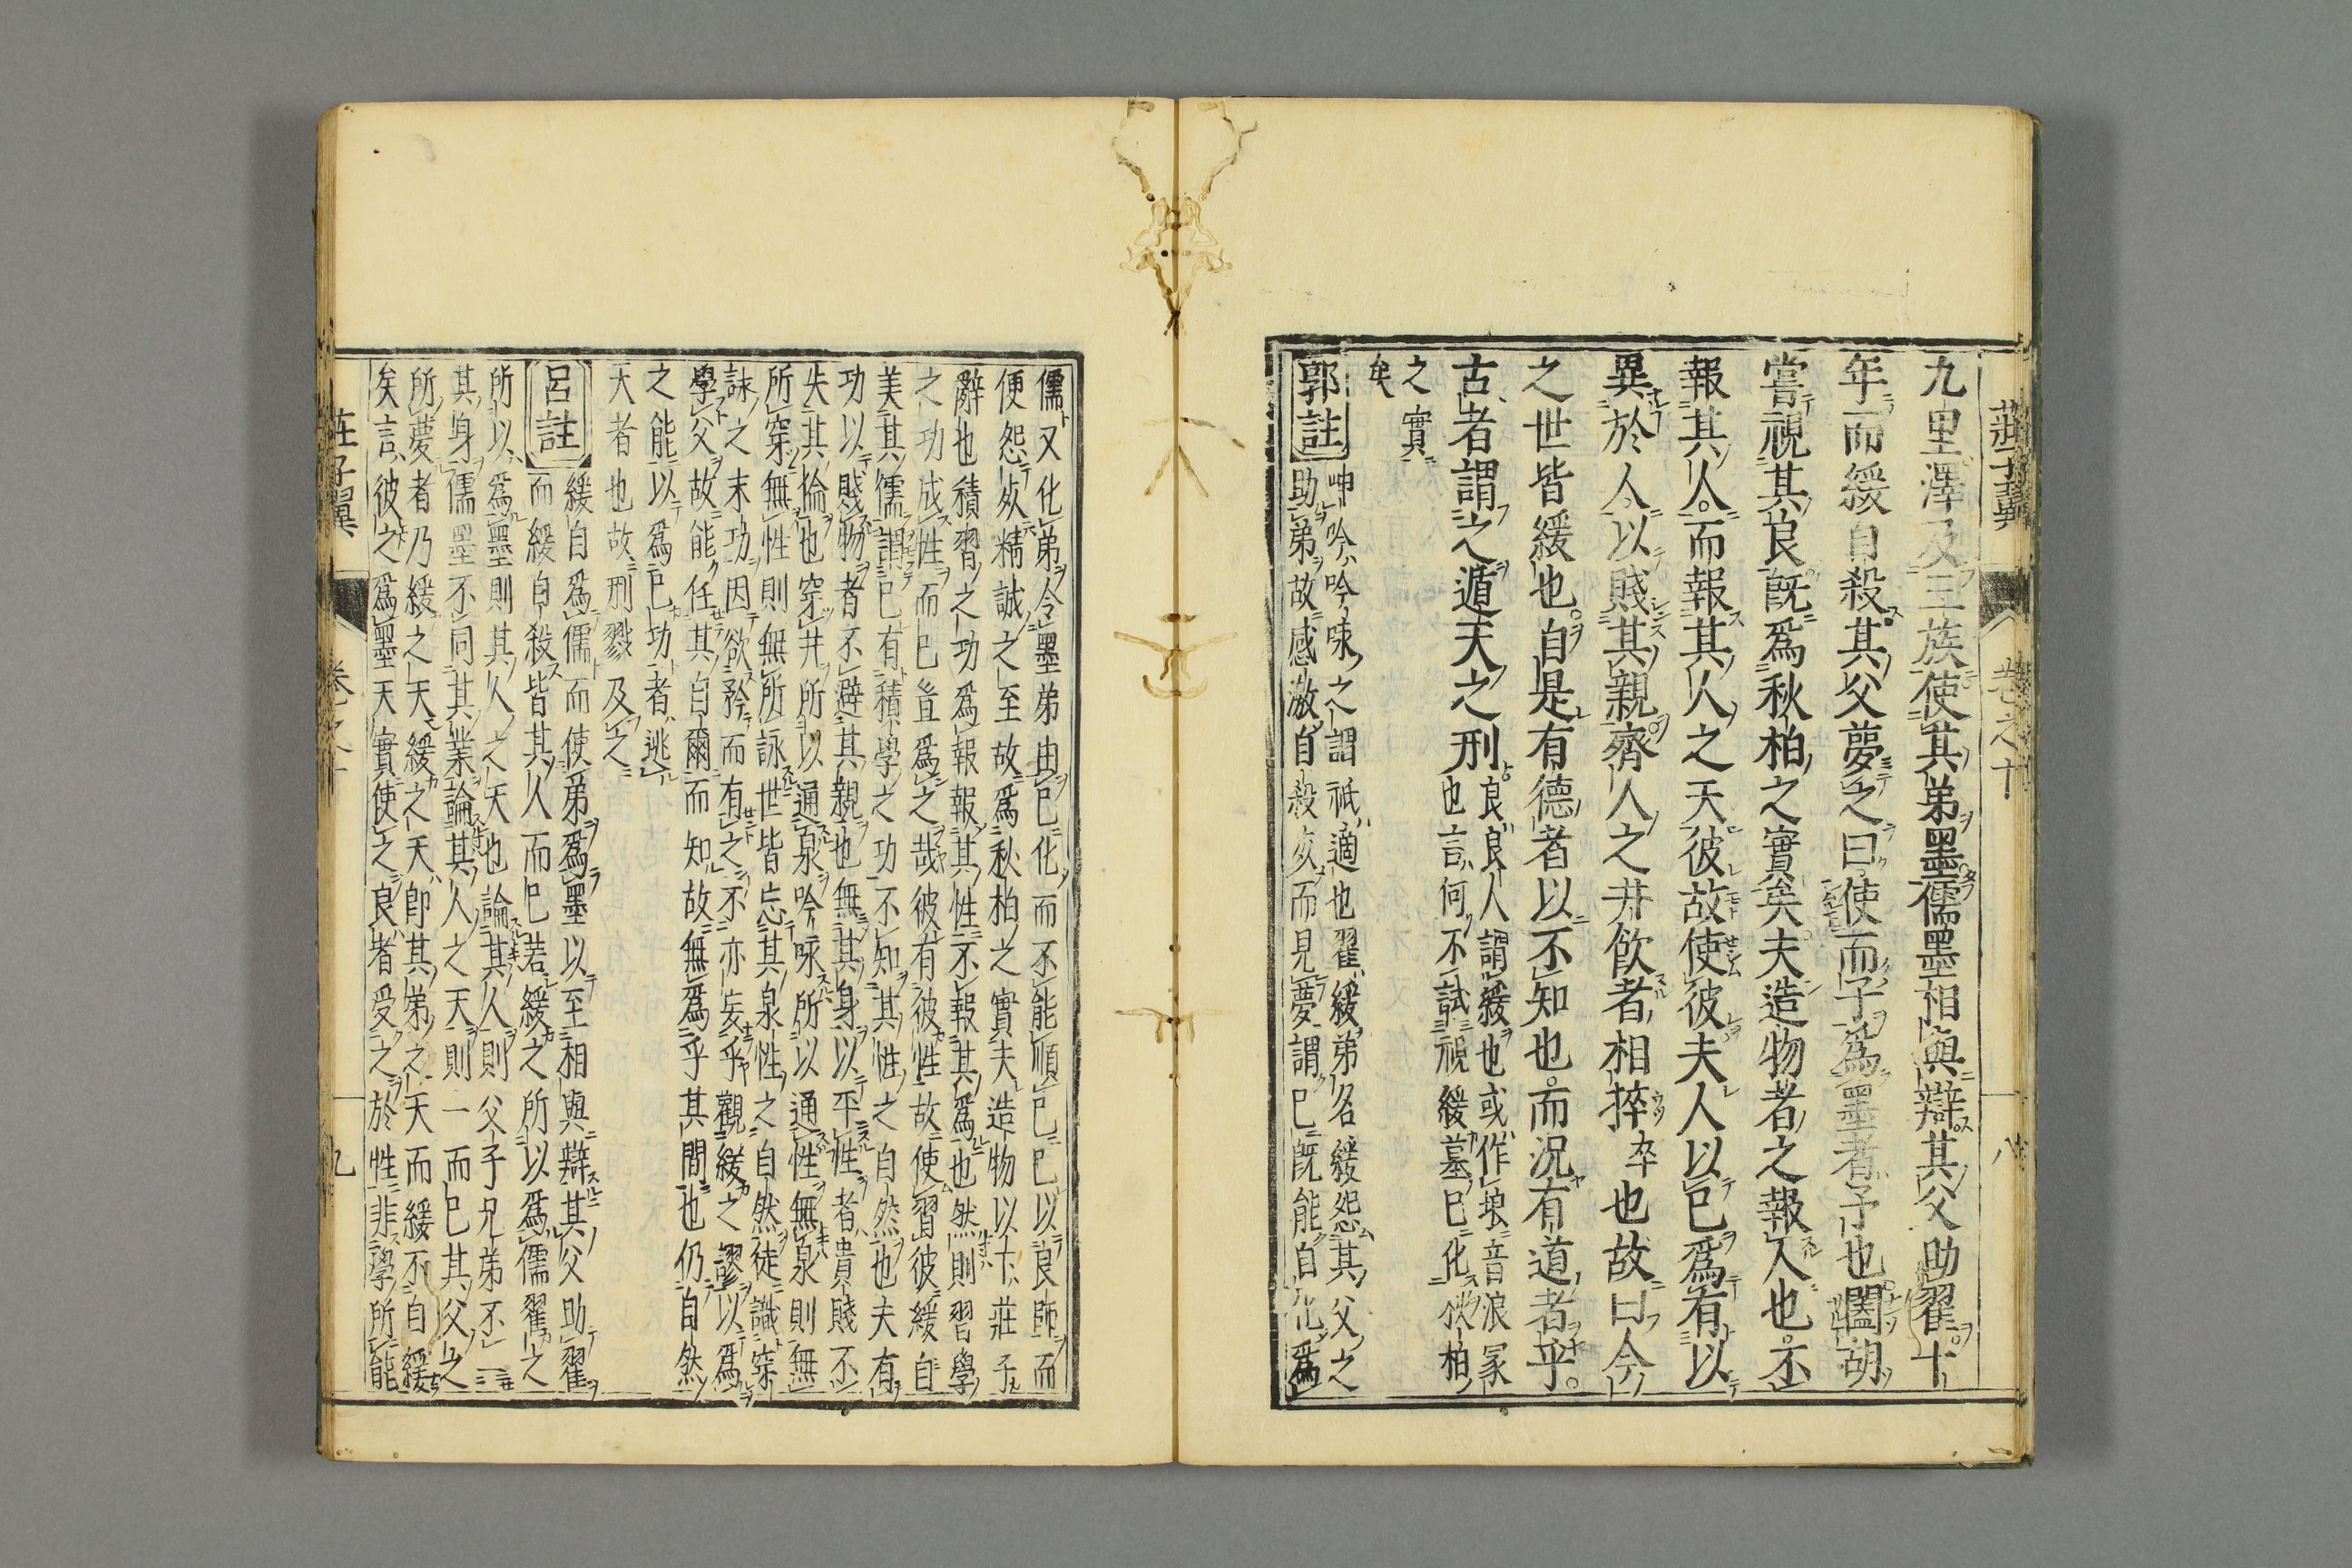 莊子翼 卷之十 八
九里澤及三族使其弟墨儒墨相與辯其父助翟十
年而緩自殺其父夢之曰使而子爲墨者予也闔胡
嘗視其良既爲秋柏之實矣夫造物者之報人也不
報其人而報其人之天彼故使彼夫人以已爲有以
異於人以賤其親齊人之井飲者相捽也故曰今
之世皆緩也自是有德者以不知也而況有道者乎
古者謂之遁天之刑
良良人謂緩也或作埌音浪冢
也言何不試視緩墓已化秋柏
之實
矣
郭註
呻吟吟咏之謂祇適也翟緩弟名緩怨其父之
助弟故感激自殺死而見夢謂已既能自化爲
儒又化弟令墨弟由已化而不能順已已以良師而
便怨死精誠之至故爲秋柏之實夫造物以下莊子
辭也積習之功爲報報其性不報其爲也然則習學
之功成性而已豈爲之哉彼有彼性故使習彼緩自
美其儒謂已有積學之功不知其性之自然也夫有
功以賤物者不避其親也無其身以平性者貴賤不
失其倫也穿井所以通泉吟咏所以通性無泉則無
所穿無性則無所詠世皆忘其泉性之自然徒識穿
詠之末功因欲矜而有之不亦妄乎觀緩之謬以爲
學父故能任其自爾而知故無爲乎其間也仍自然
之能以爲已功者逃
天者也故刑戮及之
呂註
緩自爲儒而使弟爲墨以至相與辯其父助翟
而緩自殺皆其人而已若緩之所以爲儒翟之
所以爲墨則其人之天也論其人則父子兄弟不
其身儒墨不同其業論其人之天則一而已其父之
所夢者乃緩之天緩之天即其弟之天而緩不自緩
矣言彼之爲墨天實使之良者受之於性非學所能
莊子翼 卷之十 九